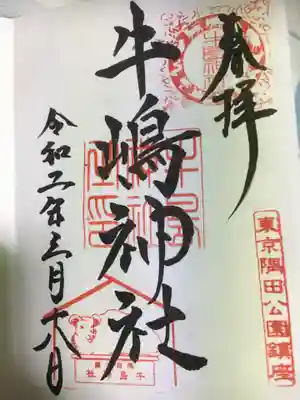 奉拝
牛嶋神社
令和二年三月六日
東京隅田公園鎮座
牛島社